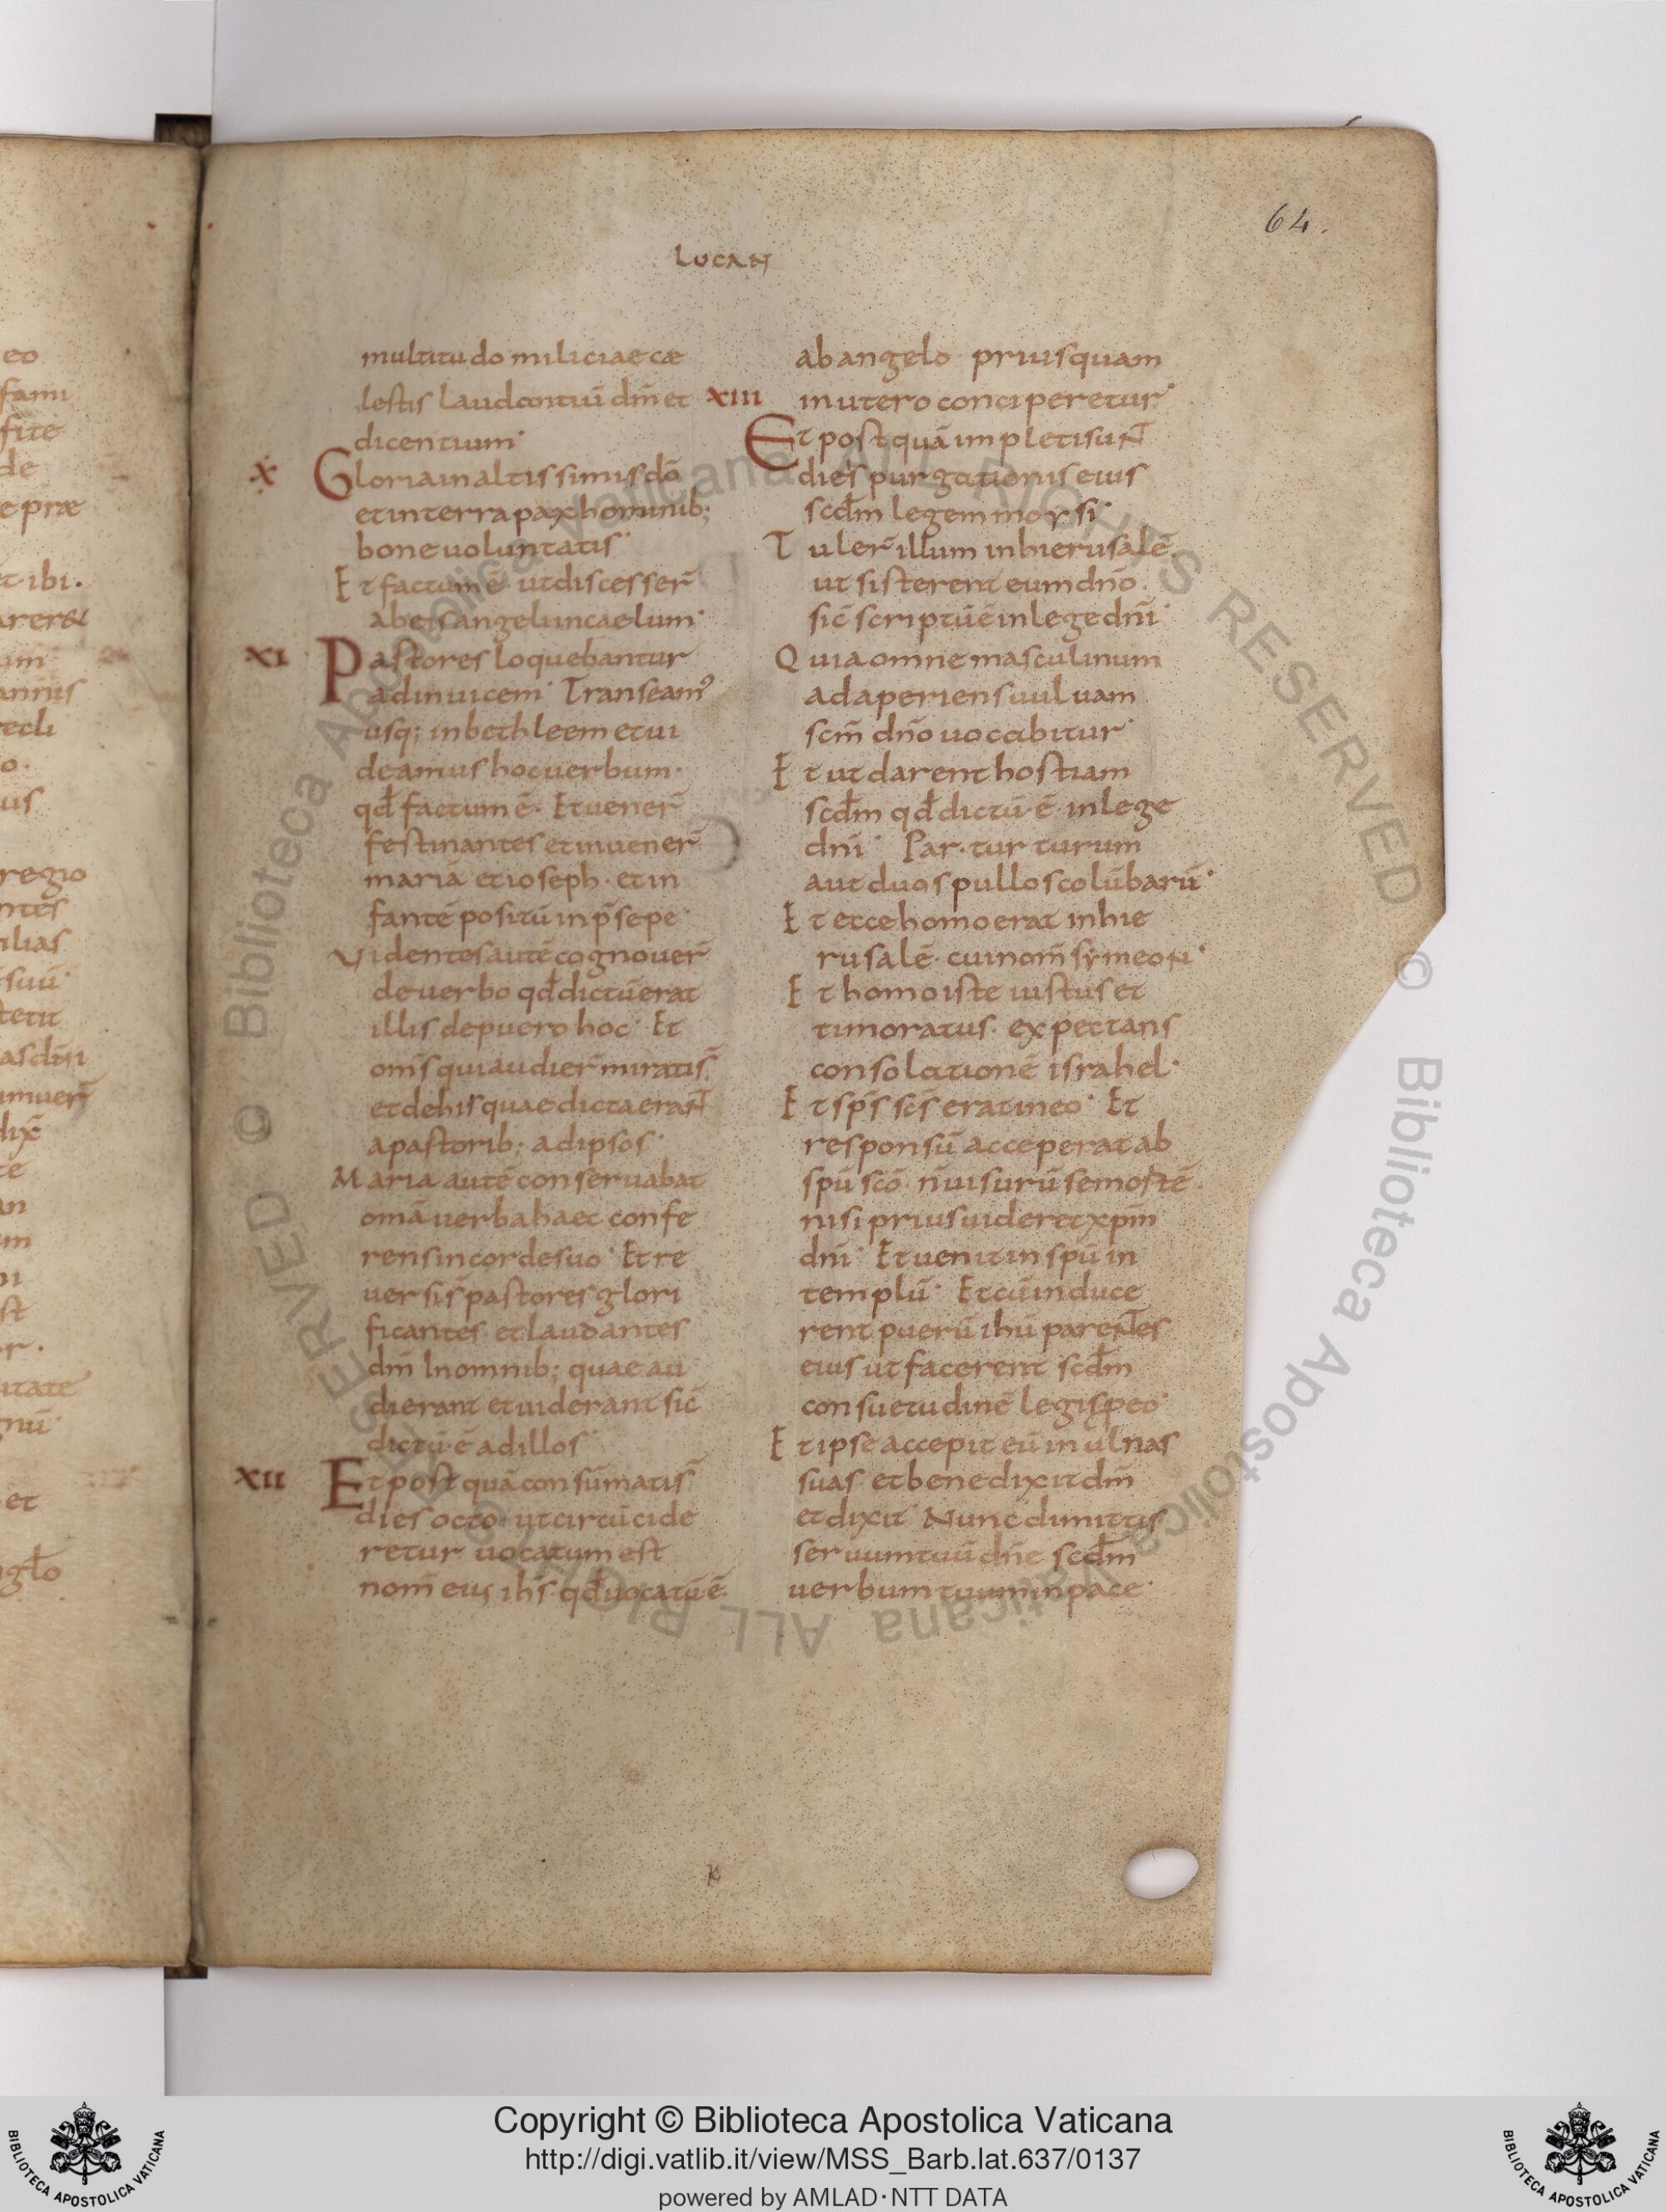 64.
LUCAN
multitudo miliciae cæ
lestis laudantiū dm̄ et
dicentium·
X Gloria in altissimis dō
et in terra pax hominib;
bone uoluntatis·
Et factum ē· ut discesser̄
ab eis angeli in caelum·
XI Pastores loquebantur
adinuicem· Transeam᾿
usq; in bethleem et ui
deamus hoc uerbum·
qd̄ factum ē· Et uener̄
festinantes et inuener̄
mariā et ioseph· et in
fantē positū in p̄sepe·
Videntes autē cognouer̄
de uerbo qd̄ dictū erat
illis de puero hoc· Et
om̄s qui audier̄ mirati s̄·
et de his quae dicta erant
a pastorib; ad ipsos·
Maria autē conseruabat
omā uerba haec confe
rens in corde suo· Et re
uersi s̄ pastores glori
ficantes et laudantes
dm̄ In omnib; quae au
dierant et uiderant sic̄
dictū ē ad illos·
XII Et post quā consūmati s̄
dies octo· ut circūcide
retur uocatum est
nom̄ eius ihs̄ qd̄ uocatū ē
ab angelo· prius quam
XIII in utero conciperetur·
Et post quā impleti sunt
dies purgationis eius
scd̄m legem moysi·
Tuler̄ illum in hierusalē·
ut sisterent eum dn̄o·
sic̄ scriptū ē in lege dn̄i·
Quia omne masculinum
adaperiens uuluam
scm̄ dn̄o uocabitur·
Et ut darent hostiam
scd̄m qd̄ dictū· ē· in lege
dn̄i· Par· tur turum
aut duos pullos colūbarū·
Et ecce homo erat in hie
rusalē· cui nom̄ symeon·
Et homo iste iustus et
timoratus· expectans
consolationē israhel·
Et sp̄s sc̄s erat in eo· Et
responsū acceperat ab
spū scō· n̄ uisurū se mortē·
nisi prius uideret xpm̄
dn̄i· Et uenit in spū in
templū· Et cū induce
rent puerū ihū parentes
eius ut facerent scd̄m
consuetudinē legis p eo·
Et ipse accepit eū in ulnas
suas et benedixit dm̄
et dixit· Nunc dimittis
seruum tuū dn̄e scd̄m
uerbum tuum in pace·
Copyright © Biblioteca Apostolica Vaticana
http://digi.vatlib.it/view/MSS_Barb.lat.637/0137
powered by AMLAD·NTT DATA